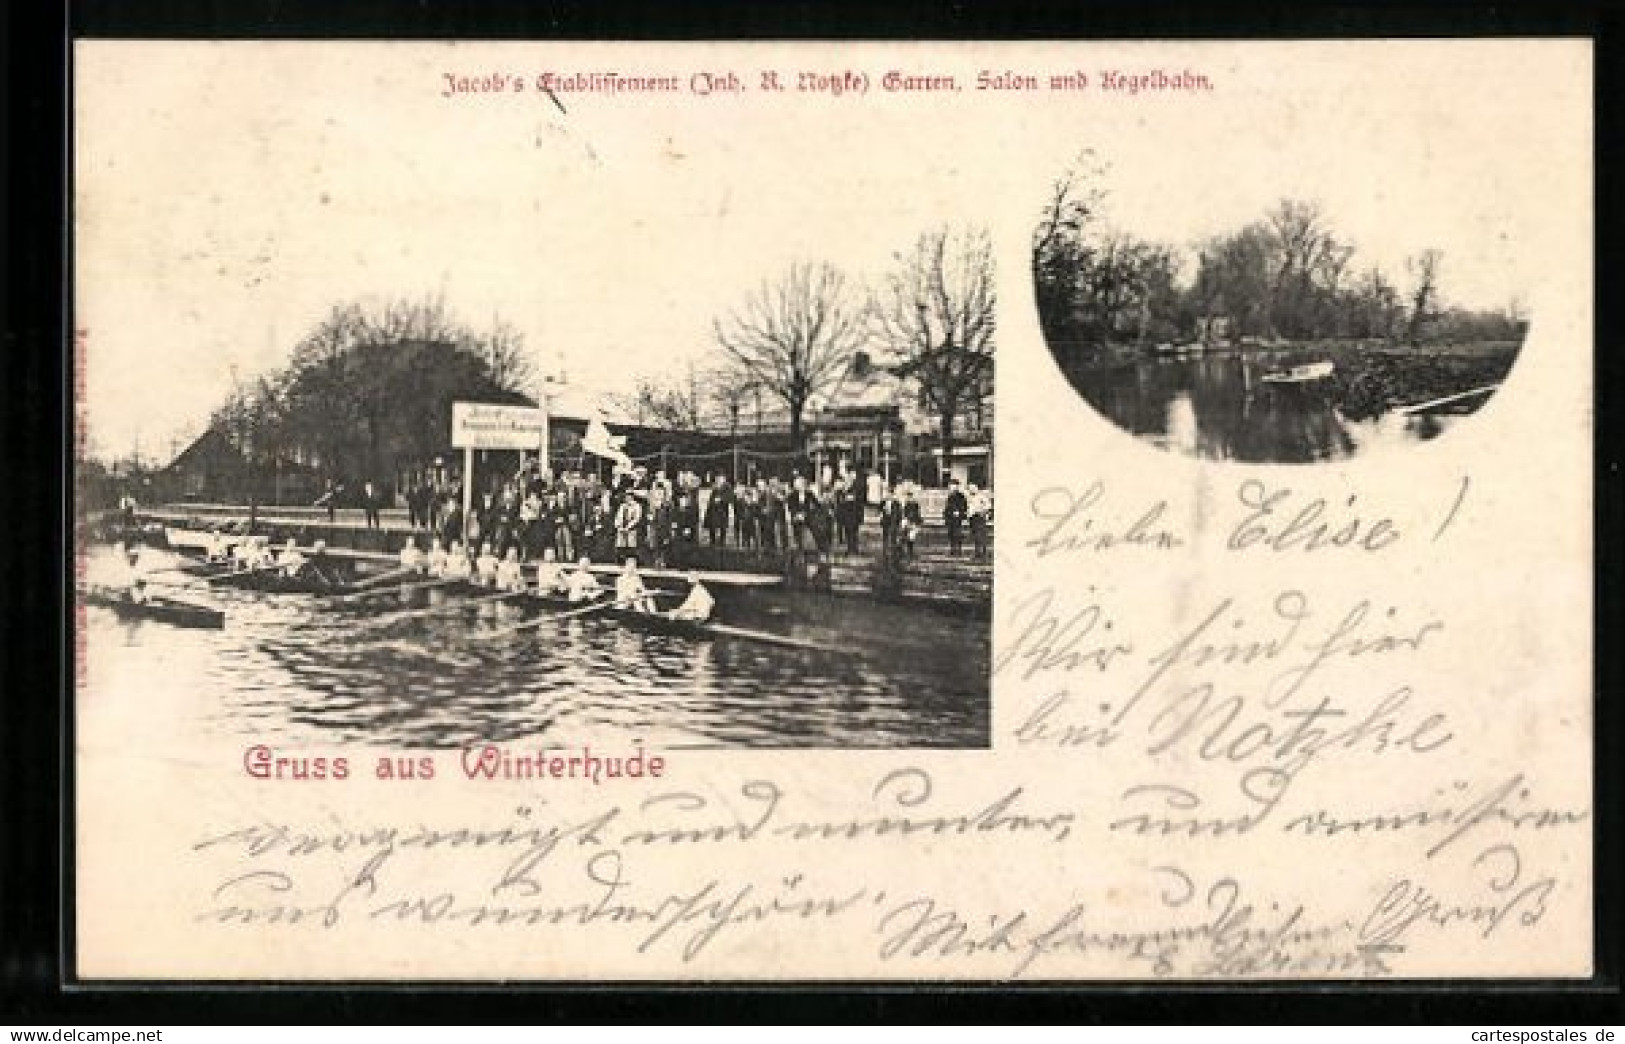 Jacob's Etablissement (Inh. R. Notzke) Garten, Salon und Kegelbahn.
Gruss aus Winterhude
Liebe Elise!
Wir sind hier
bei Notzke
vergnügt und munter, und amüsiren
uns wunderschön.
Mit freundlichen Gruß
Lorenz
www.cartespostales.eu
cartespostales.de